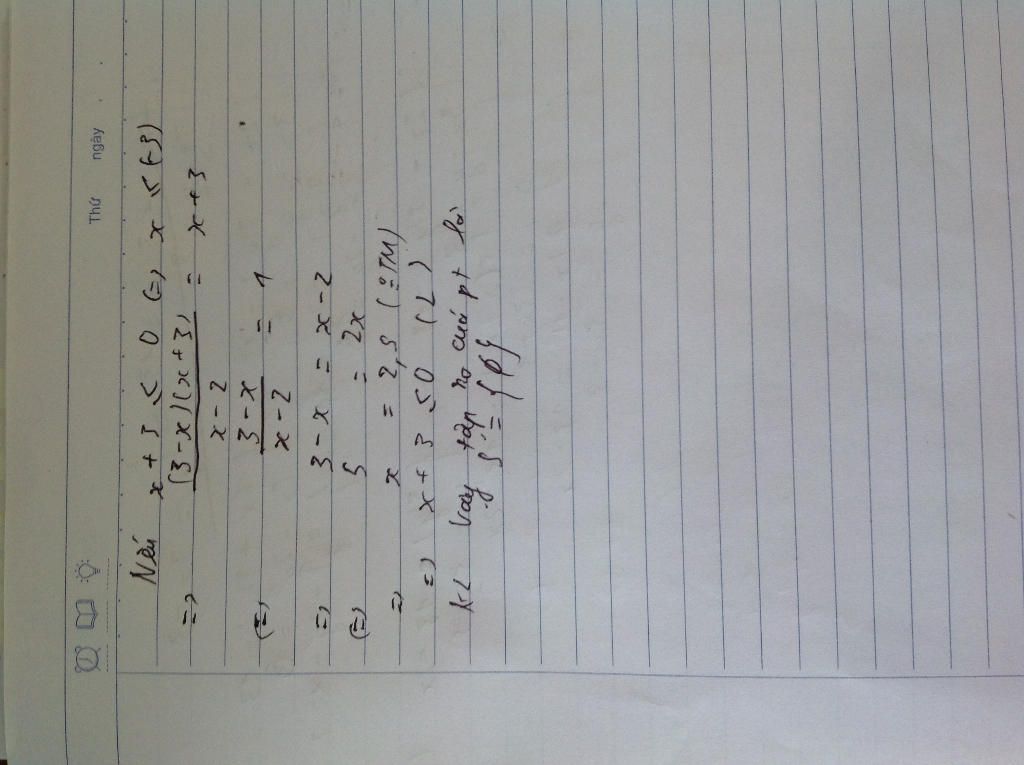 Thứ ngày
Nếu x + 3 ≤ 0 (=) x ≤ (-3)
=) (3-x)(x+3) / x-2 = x+3
(=) 3-x / x-2 = 1
=) 3-x = x-2
(=) 5 = 2x
=) x = 2,5 (TM)
=) x + 3 ≤ 0 (L)
KL Vay tập no của pt là
S = {ϕ}